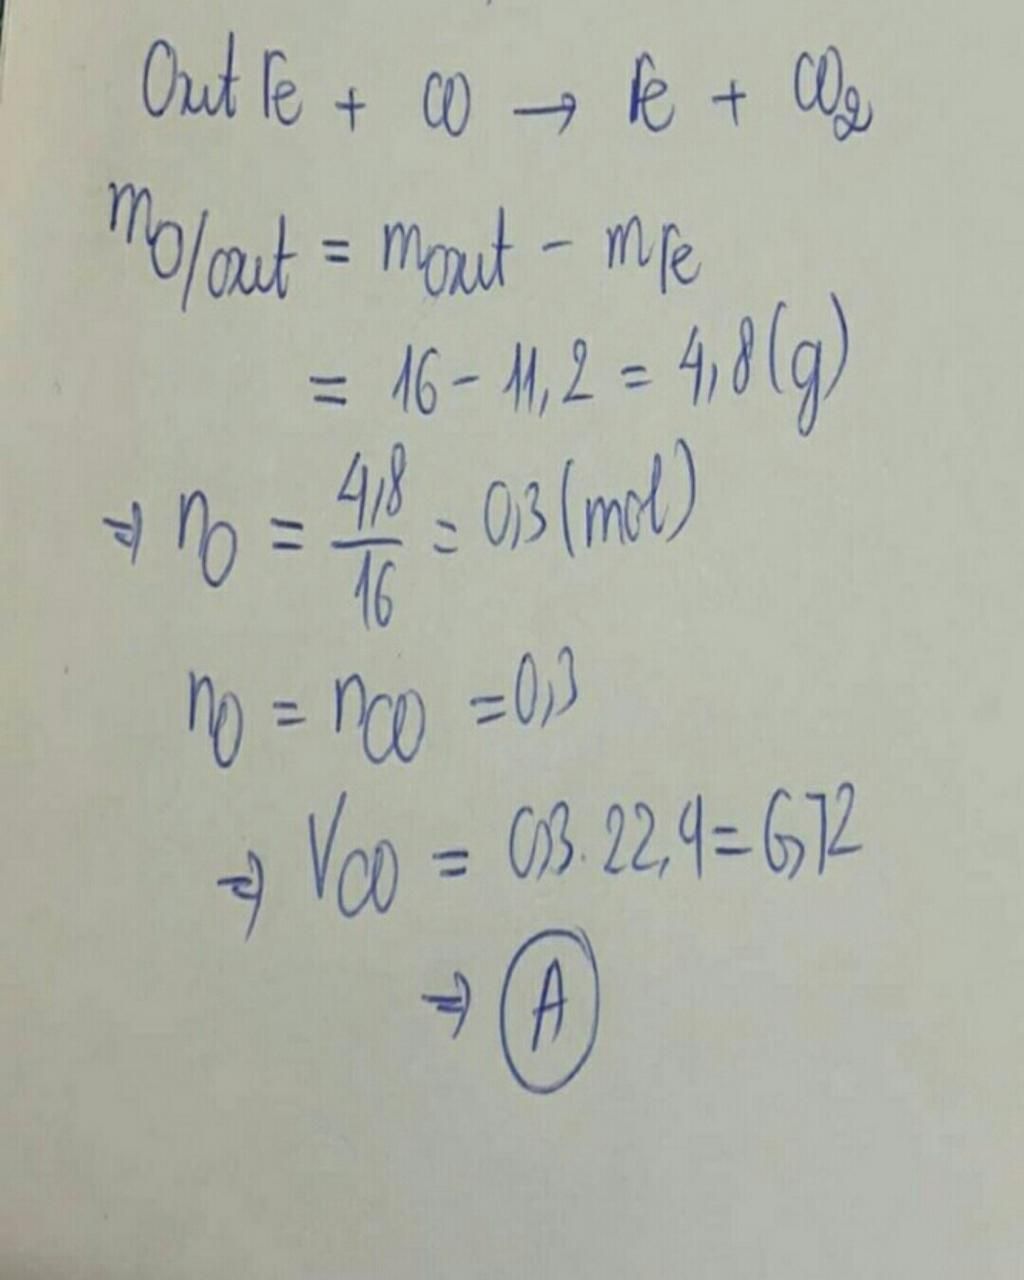 Oxit Fe + CO → Fe + CO₂
mO/oxit = moxit - mFe
= 16 - 11,2 = 4,8(g)
⇒ nO = 4,8/16 = 0,3(mol)
nO = nCO = 0,3
⇒ VCO = 0,3.22,4 = 6,72
⇒ A